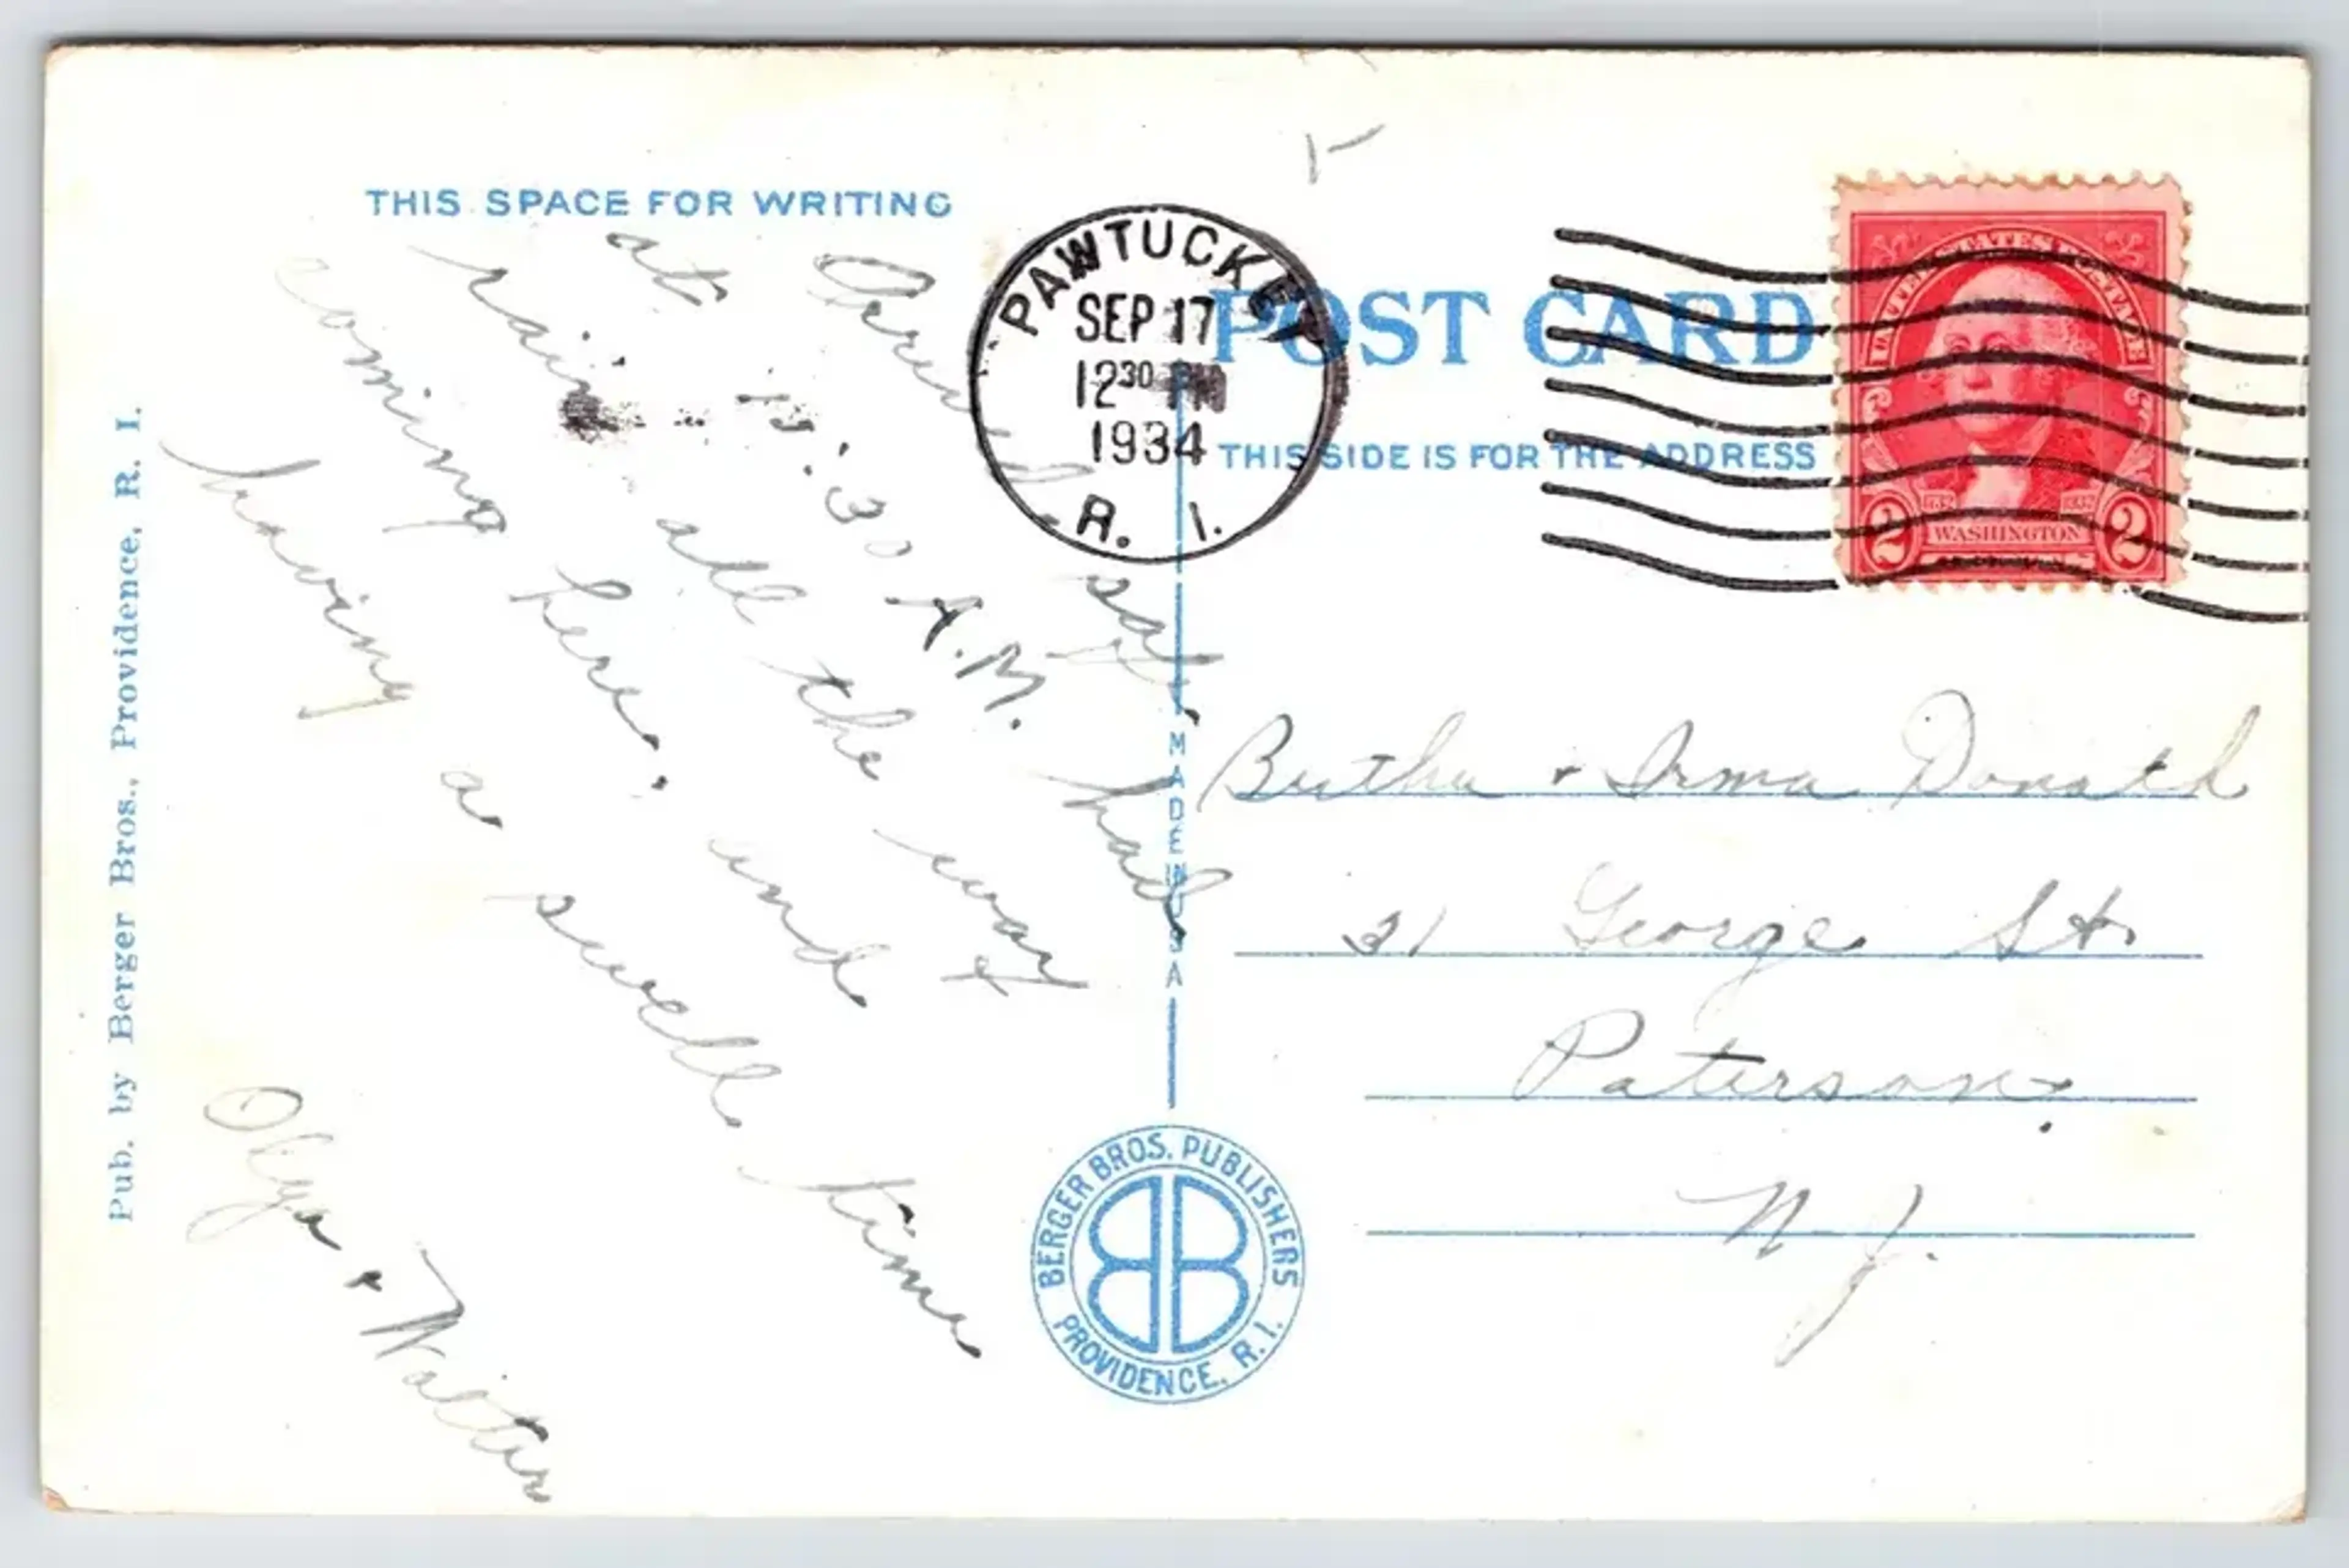 THIS SPACE FOR WRITING
Arrived sat.
at :30 A.M. had
rain all the way
coming here. and
having a swell time
Olga + Walter
Pub. by Berger Bros., Providence, R. I.
PAWTUCKET
SEP 17
12 30 PM
1934
R. I.
POST CARD
THIS SIDE IS FOR THE ADDRESS
UNITED STATES POSTAGE
1732 1932
2 WASHINGTON 2
MADE IN USA
Bertha + Irma
31 George St.
Paterson.
N. J.
BERGER BROS. PUBLISHERS
BB
PROVIDENCE, R. I.